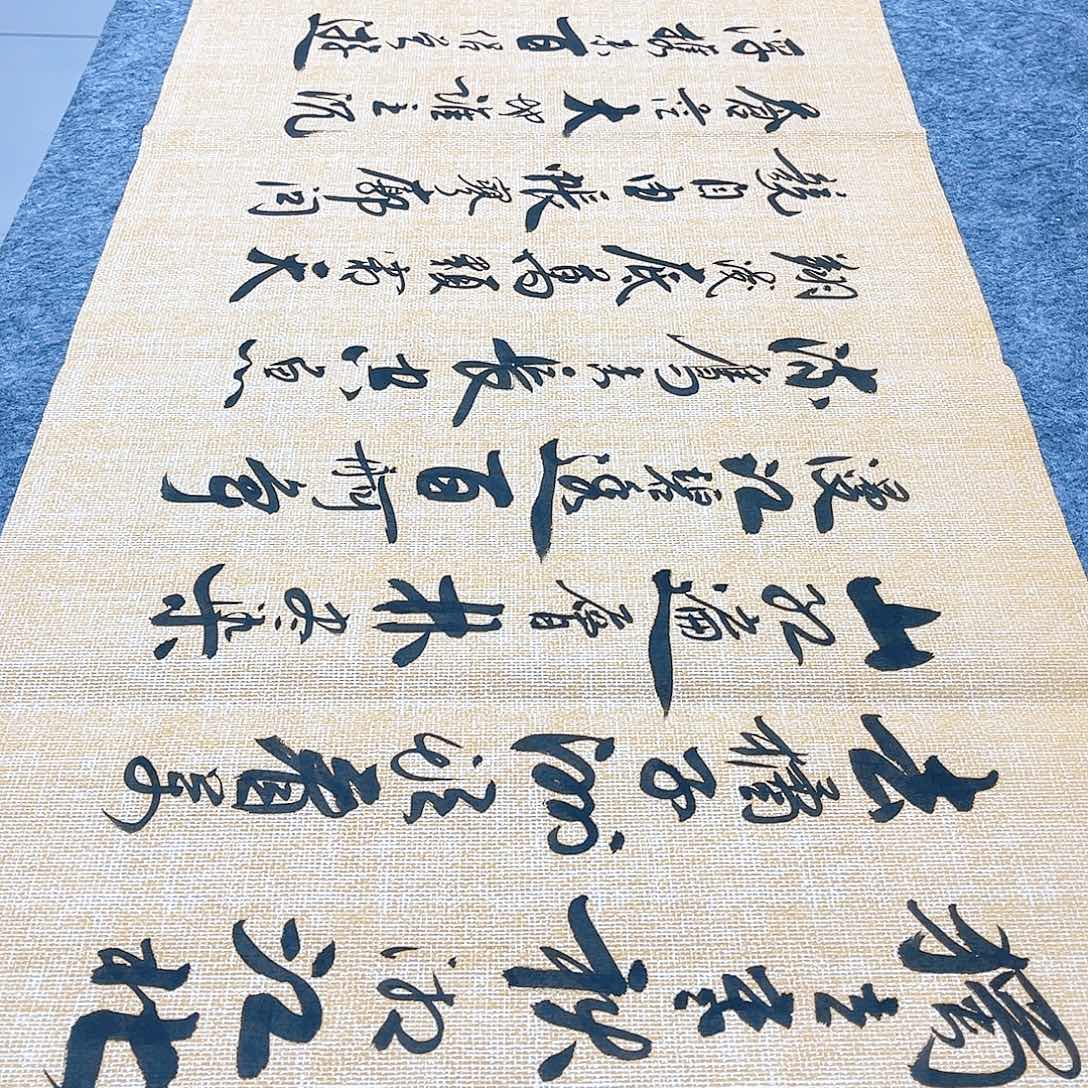 獨立寒秋湘江北
去橘子洲頭看萬
山紅遍層林盡染
漫江碧透百舸爭
流鷹擊長空魚
翔淺底萬類霜天
競自由悵寥廓問
蒼茫大地誰主沉
浮攜來百侶曾遊